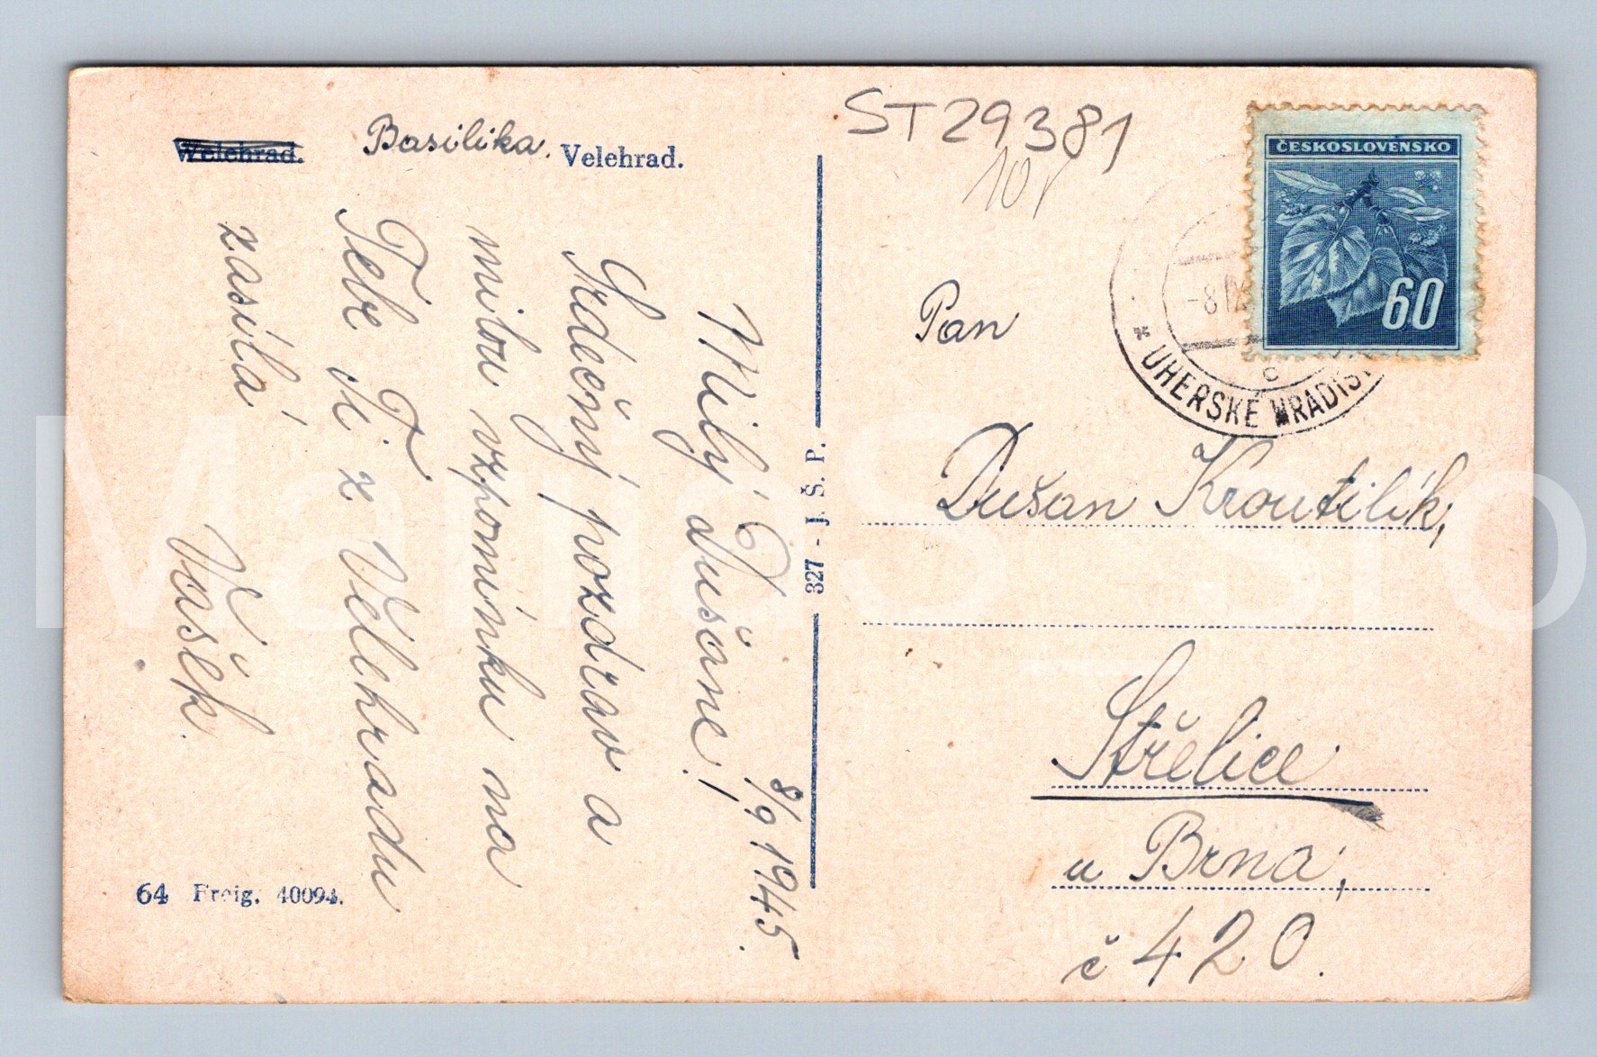 Welehrad. Basilika. Velehrad.
8/9 1945.
Milý Dušane!
Srdečný pozdrav a
milou vzpomínku na
Tebe Ti z Velehradu
zasílá
Vašek.
64 Freig. 40094.
327 - J. Š. P.
ST29381
ČESKOSLOVENSKO
60
-8 IX
C
* UHERSKÉ HRADIŠ
Pan
Dušan Kroutilík,
Střelice
u Brna,
č 420.